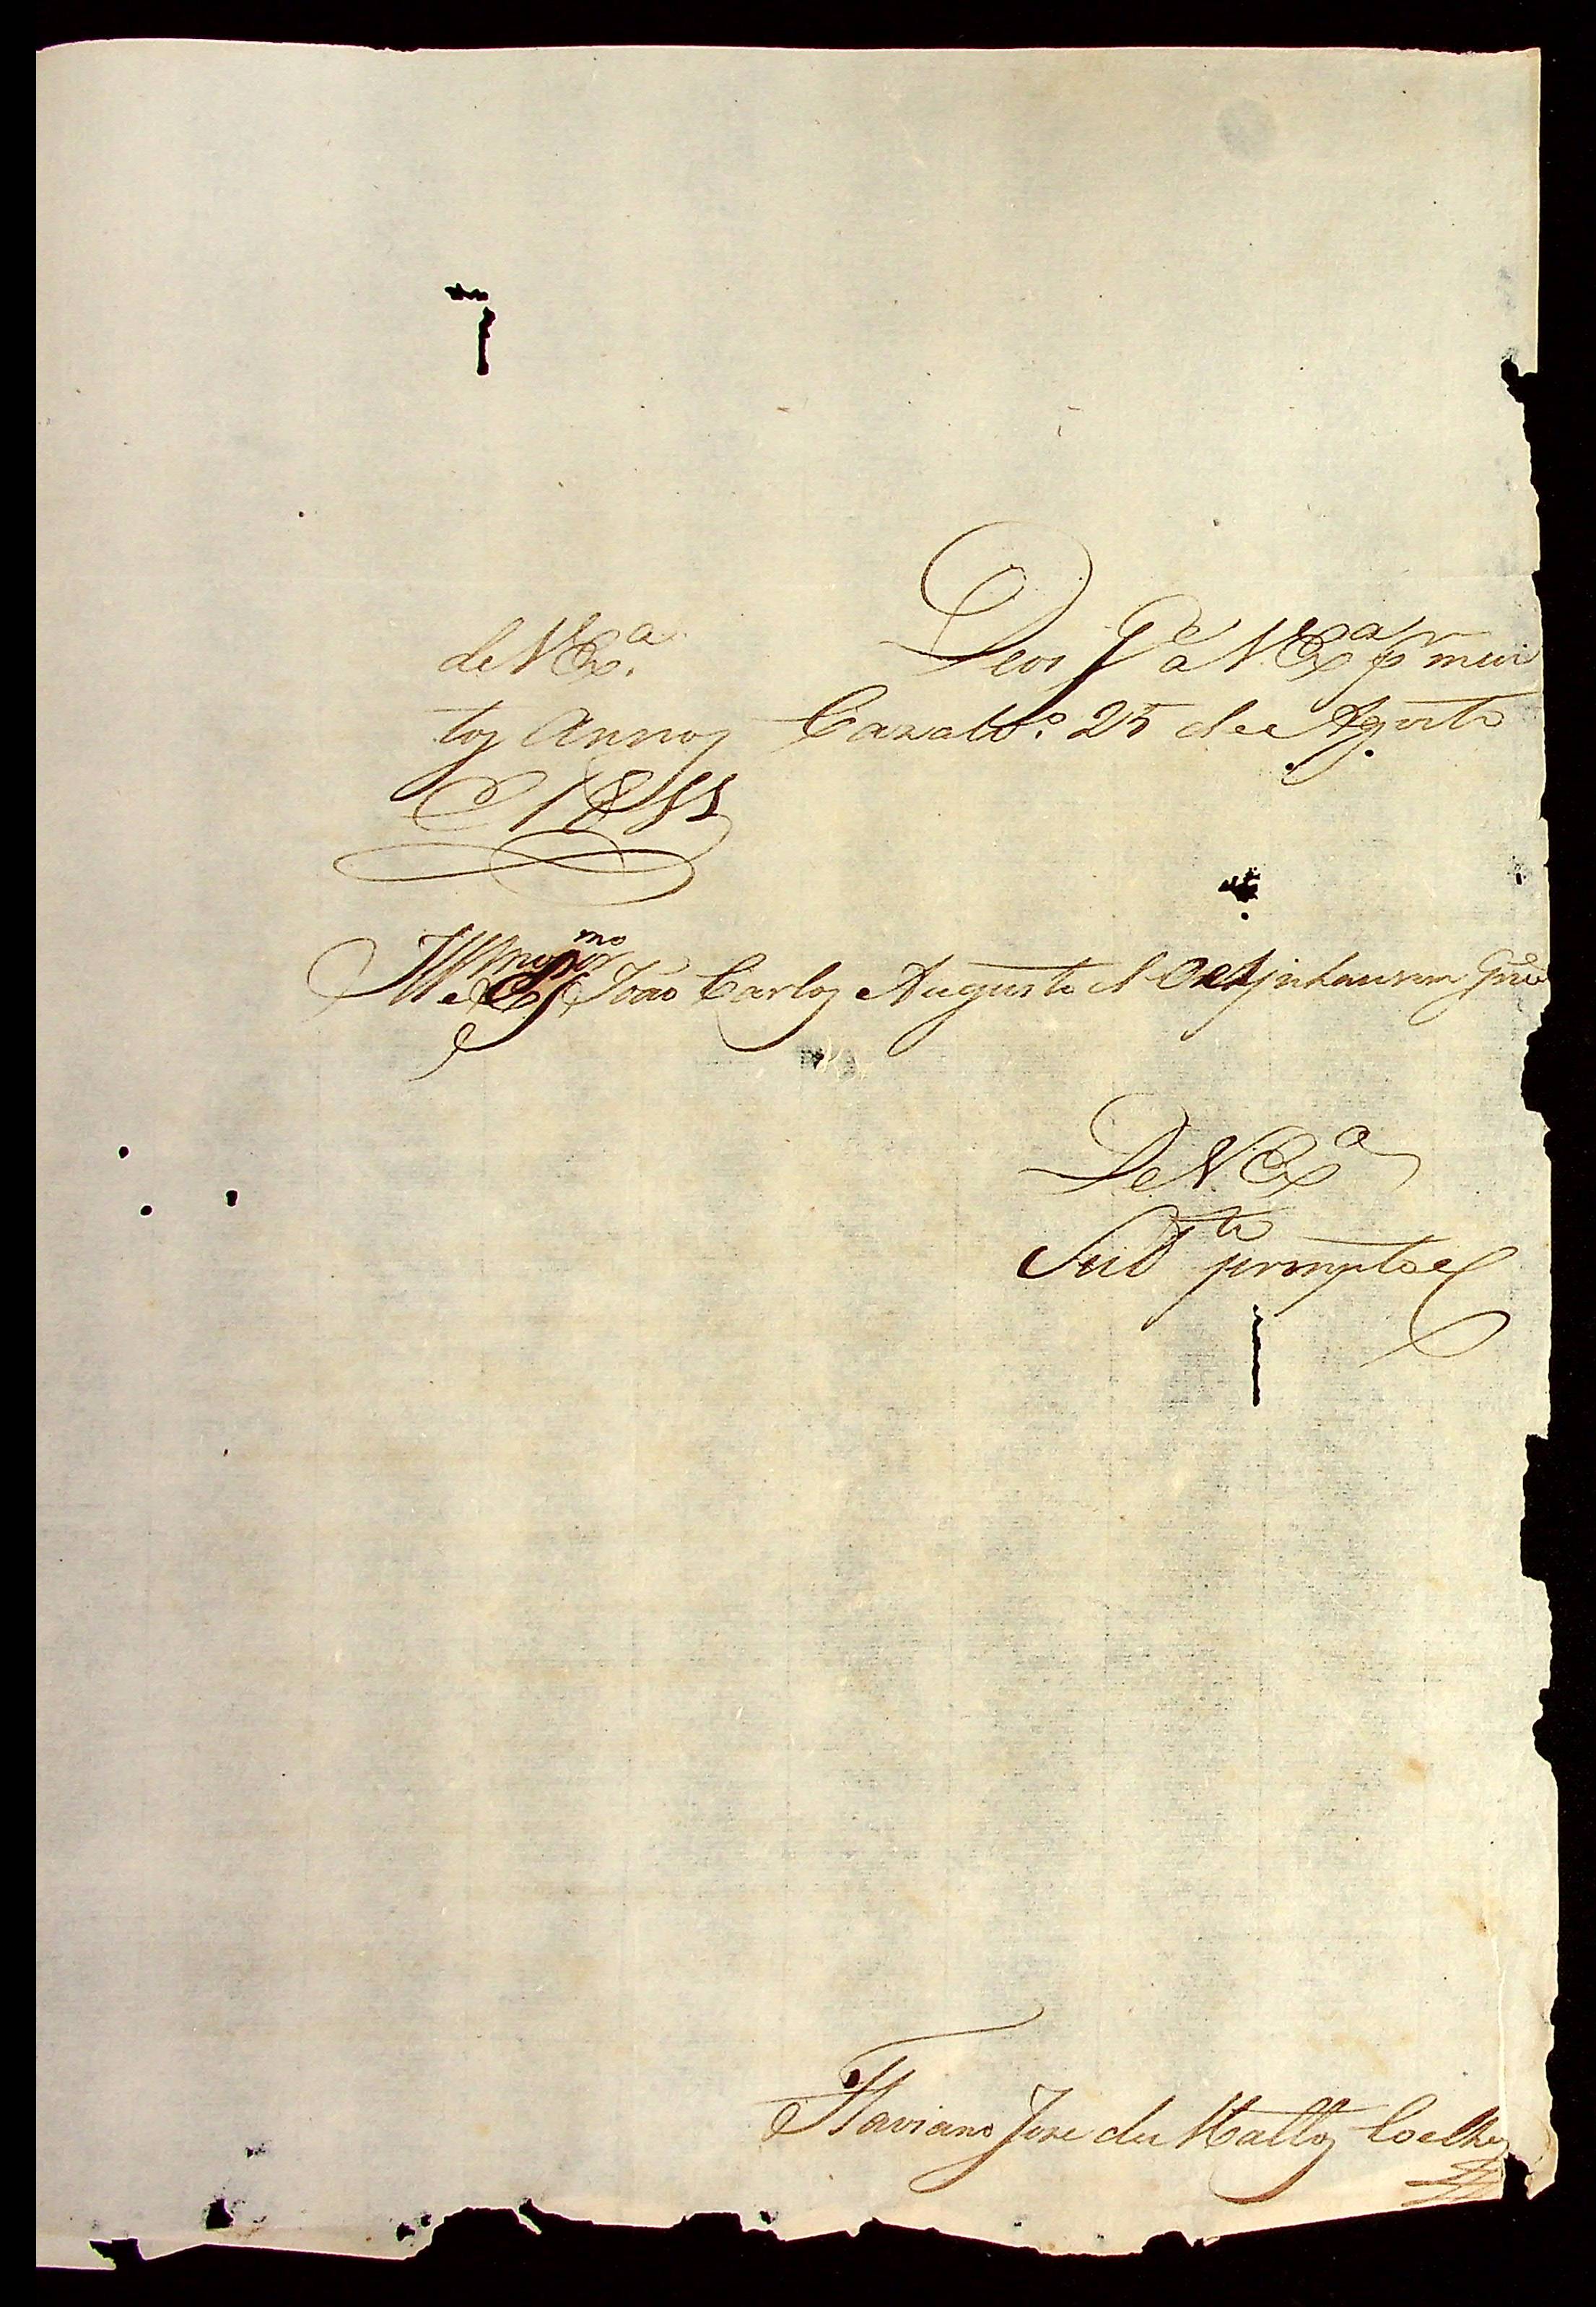 de V Ex.ª Deos G.e a V. Ex.ª p.r mui
tos Annos Cazal V.º 25 de Agosto
1811
Ill.mo e Ex.mo Sr João Carlos Augusto d'Oeijnhausen
De V. Ex.ª
Sub.to prompto
Flaviano Joze de Mattos Coelho